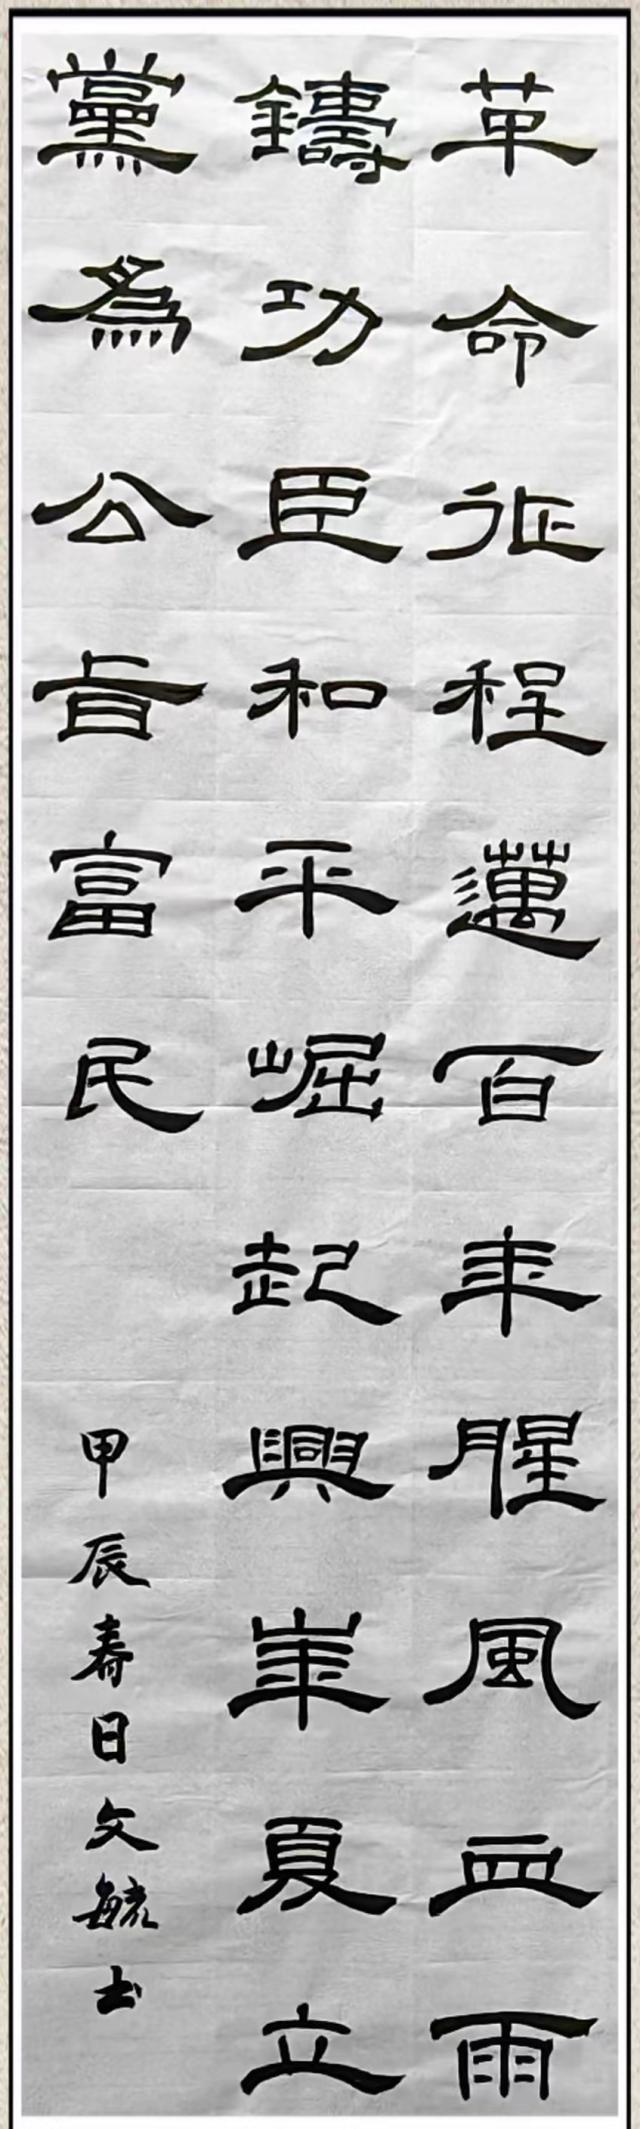 革命征程邁百年腥風血雨
鑄功臣和平崛起興華夏立
黨為公旨富民
甲辰春日文毓书